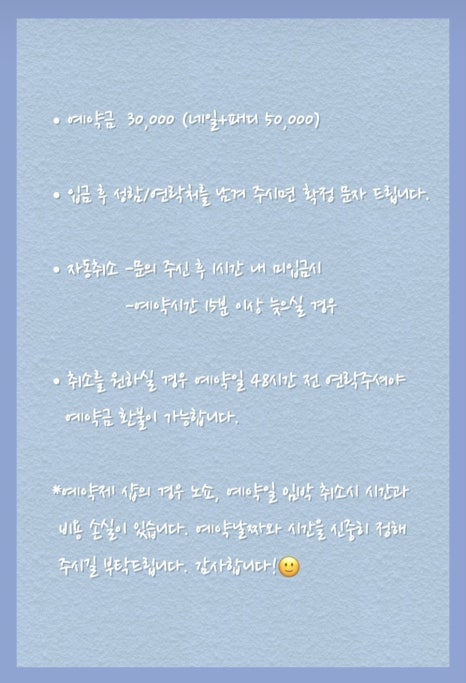 • 예약금 30,000 (네일+패디 50,000)
• 입금 후 성함/연락처를 남겨 주시면 확정 문자 드립니다.
• 자동취소 -문의 주신 후 1시간 내 미입금시
-예약시간 15분 이상 늦으실 경우
• 취소를 원하실 경우 예약일 48시간 전 연락주셔야
예약금 환불이 가능합니다.
*예약제 샵의 경우 노쇼, 예약일 임박 취소시 시간과
비용 손실이 있습니다. 예약날짜와 시간을 신중히 정해
주시길 부탁드립니다. 감사합니다!🙂